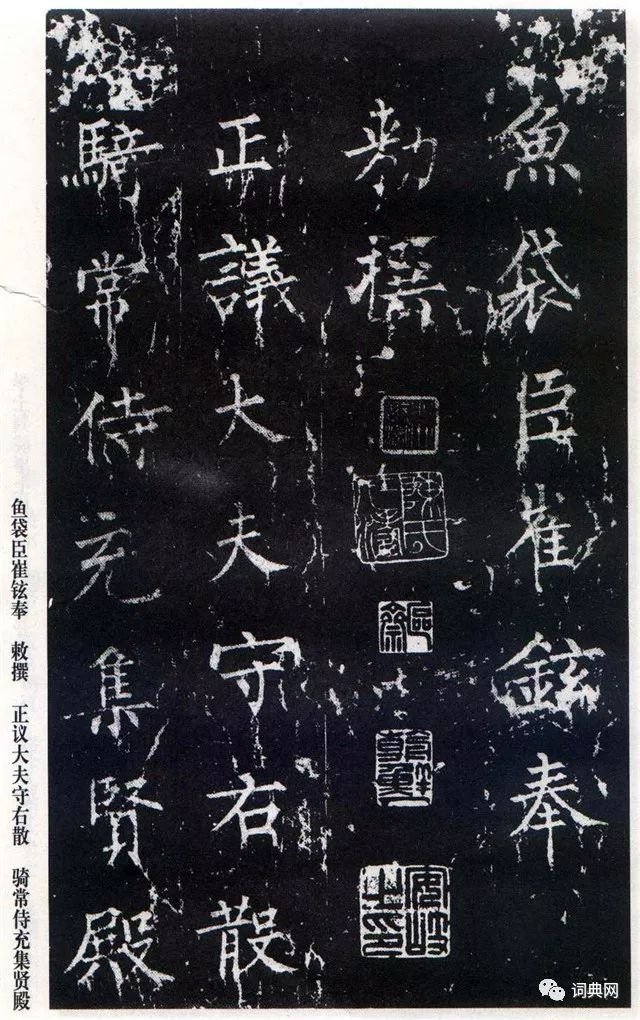 魚袋臣崔鉉奉
敕撰
正議大夫守右散
騎常侍充集賢殿
鱼袋臣崔铉奉　敕撰　正议大夫守右散　骑常侍充集贤殿
词典网